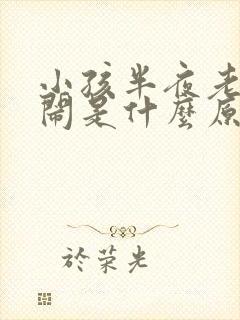 小孩半夜老
鬧是什麼原
於荣光